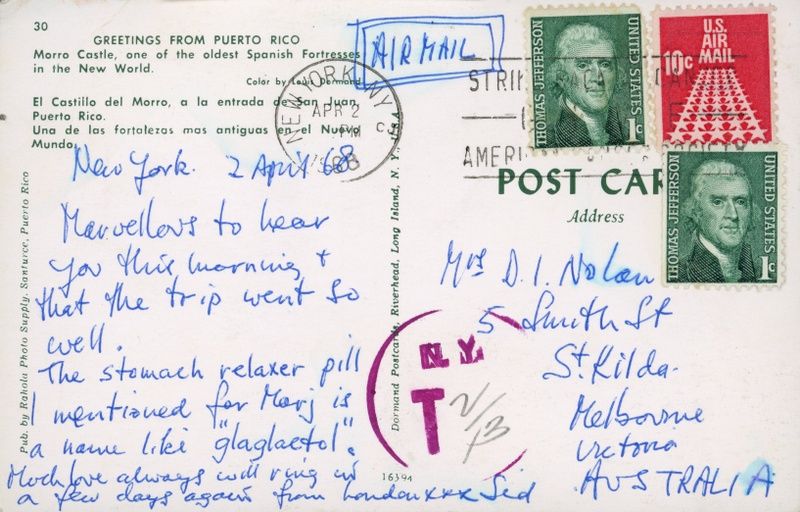 30
GREETINGS FROM PUERTO RICO
Morro Castle, one of the oldest Spanish Fortresses
in the New World.
Color by Louis Dormand
El Castillo del Morro, a la entrada de San Juan,
Puerto Rico.
Una de las fortalezas mas antiguas en el Nuevo
Mundo.
AIR MAIL
NEW YORK, N.Y.
APR 2
PM
1968
STRI
AMERI
THOMAS JEFFERSON
UNITED STATES
1c
U.S.
AIR
MAIL
10c
THOMAS JEFFERSON
UNITED STATES
1c
POST CAR
Address
New York. 2 April 68
Marvellous to hear
you this morning +
that the trip went so
well.
The stomach relaxer pill
I mentioned for Marj is
a name like "glaglaetol".
Much love always will ring in
a few days again from London xxx Sid
Mrs D. I. Nolan
5 Smith St
St. Kilda.
Melbourne
Victoria
AUSTRALIA
N.Y.
T
2/13
Pub. by Rahola Photo Supply, Santurce, Puerto Rico
Dormand Postcards, Riverhead, Long Island, N. Y., U.S.A.
16394